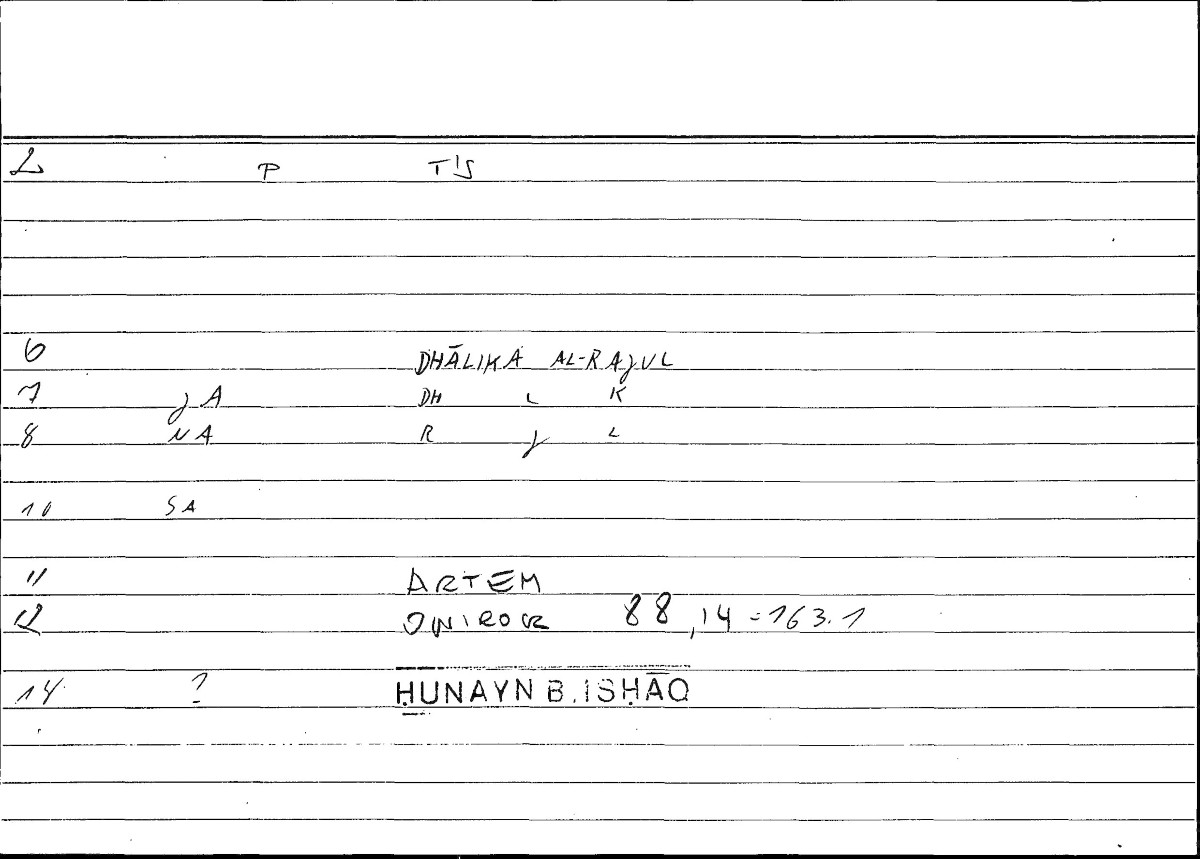 L P T'S
6 DHĀLIKA AL-RAJUL
7 JA DH L K
8 NA R J L
10 SA
11 ARTEM
12 88,14 = 163.1
14 ? ḤUNAYN B. ISḤĀQ